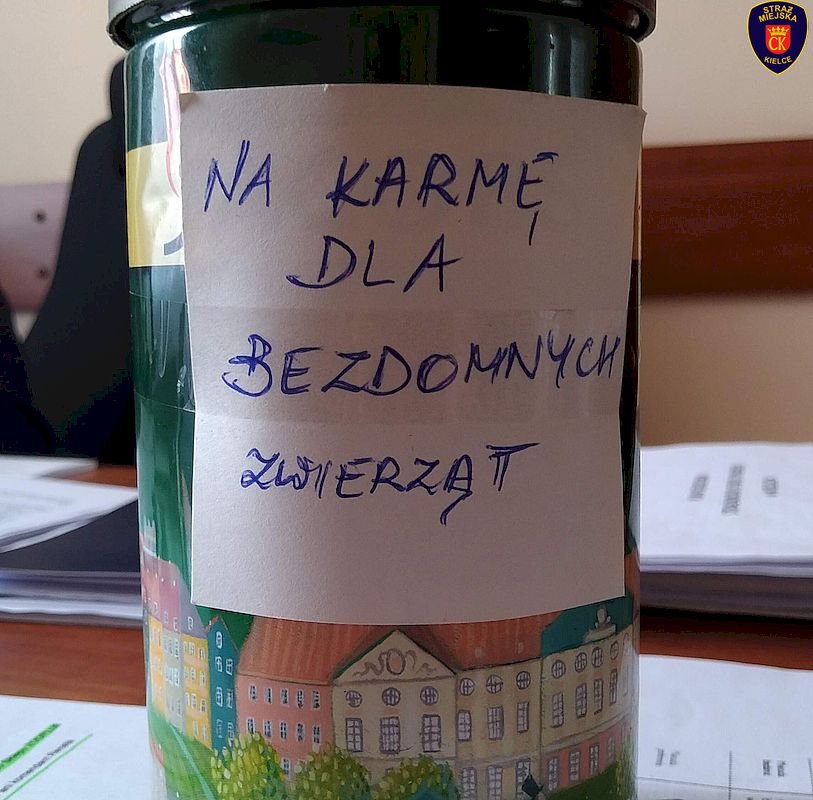 STRAŻ
MIEJSKA
CK
KIELCE
NA KARMĘ
DLA
BEZDOMNYCH
ZWIERZĄT